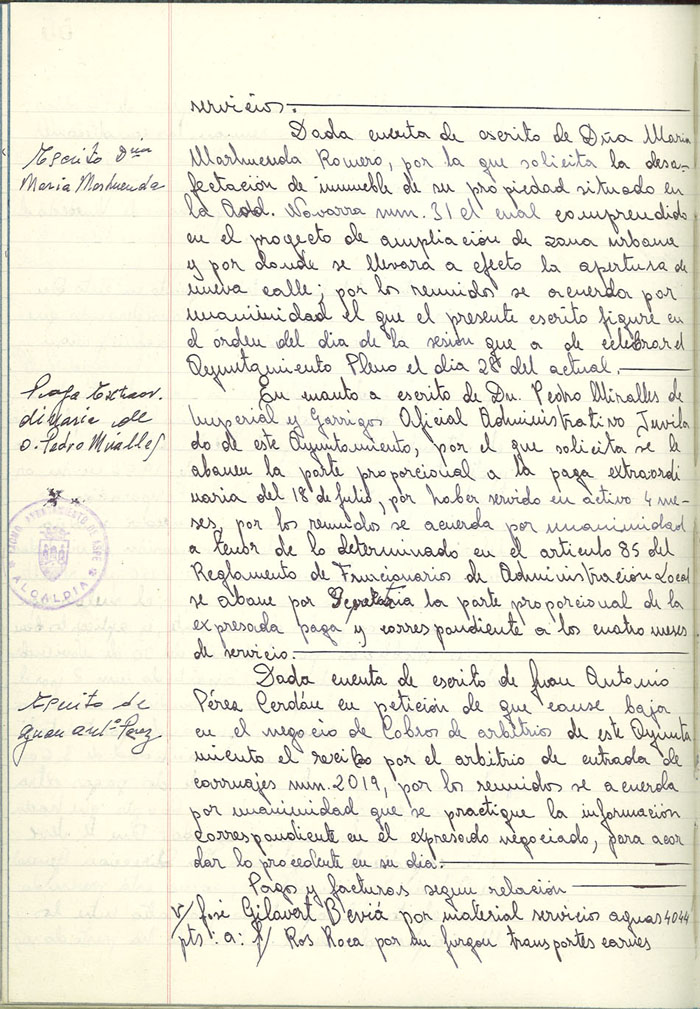 servicios.
Escrito Dña
Maria Marhuenda
Dada cuenta de escrito de Dña Maria
Marhuenda Romero, por la que solicita la desa-
fectación de inmueble de su propiedad situado en
la Avd. Navarra num. 31 el cual comprendido
en el proyecto de ampliación de zona urbana
y por donde se llevará a efecto la apertura de
nueva calle; por los reunidos se acuerda por
unanimidad el que el presente escrito figure en
el orden del dia de la sesion que a de celebrar el
Ayuntamiento Pleno el dia 28 del actual.
Paga Extraor-
dinaria de
D. Pedro Miralles
En cuanto a escrito de Dn. Pedro Miralles de
Imperial y Garrigos Oficial Administrativo Juvila
do de este Ayuntamiento, por el que solicita se le
abonen la parte proporcional a la paga extraordi
naria del 18 de Julio, por haber servido en activo 4 me-
ses, por los reunidos se acuerda por unanimidad
a tenor de lo determinado en el articulo 85 del
Reglamento de Funcionarios de Administración Local
se abone por la parte proporcional de la
expresada paga y correspondiente a los cuatro meses
de servicio.
AYUNTAMIENTO DE ASPE
ALCALDIA
Escrito de
Juan Antº Perez
Dada cuenta de escrito de Juan Antonio
Pérez Cerdán en petición de que cause baja
en el negocio de Cobros de arbitrios de este Ayunta
miento el recibo por el arbitrio de entrada de
carruajes num. 2019, por los reunidos se acuerda
por unanimidad que se practique la información
correspondiente en el expresado negociado, para acor
dar lo procedente en su dia.
Pagos y facturas segun relación
José Gilavert Beviá por material servicios aguas 4044
pts: a: Ros Roca por un furgon transportes carnes